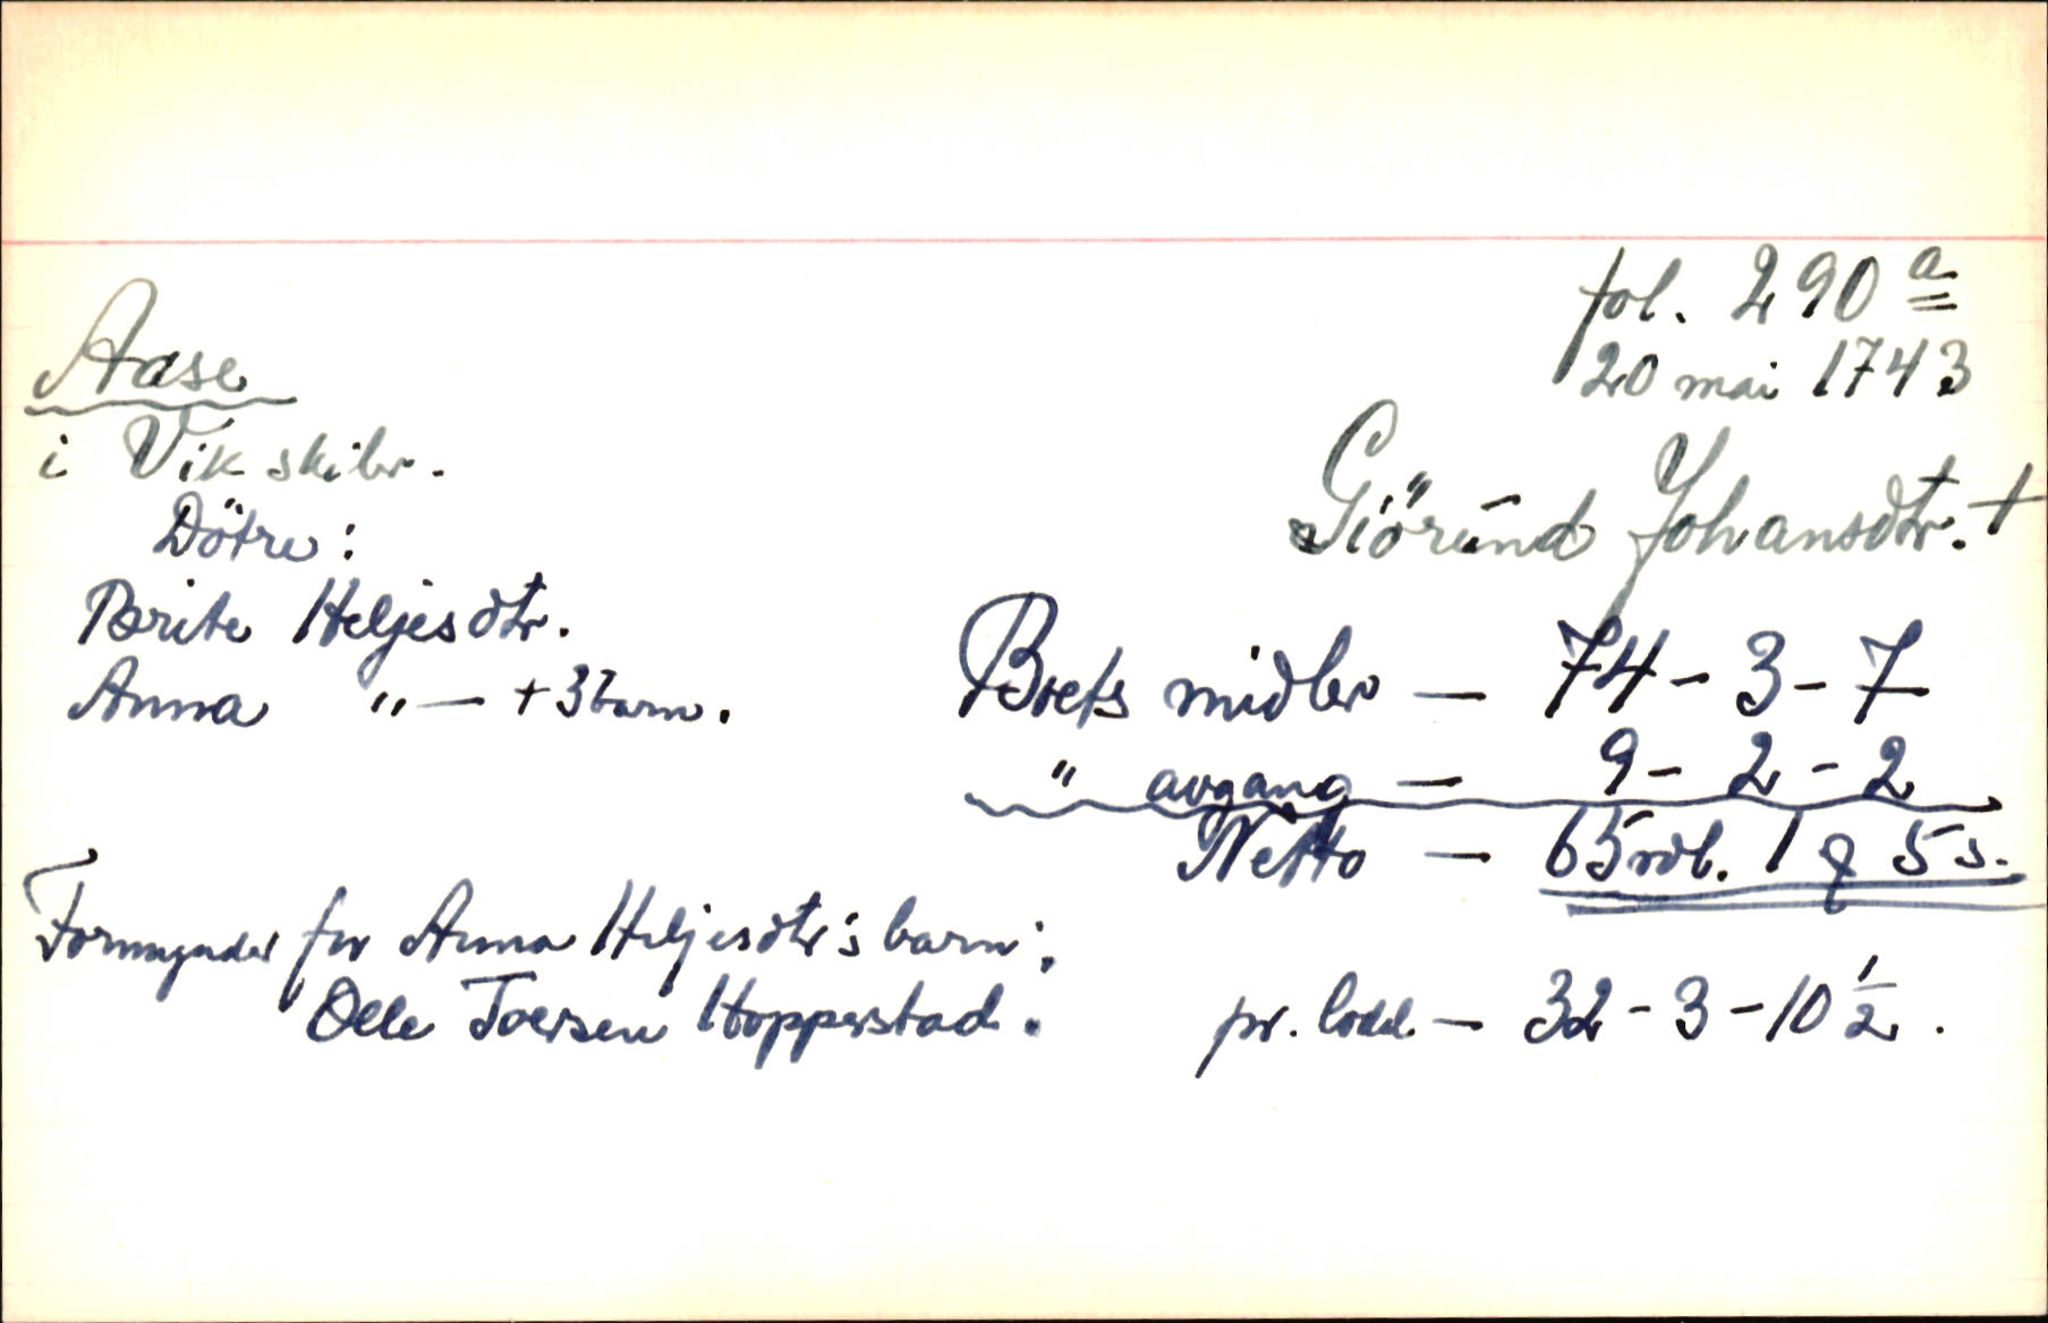 fol. 290 a
20 mai 1743
Aase
i Vik skibr.
Giörund Johansdtr. +
Dötre:
Brite Heljesdtr.
Anna " — + 3 barn.
Boets midler — 74 - 3 - 7
" avgang — 9 - 2 - 2
Netto — 65 rdl. 1 q 5 s.
Formynder for Anna Heljesdtr's barn:
Olle Toersen Hopperstad.
pr. lodd — 32 - 3 - 10 1/2.